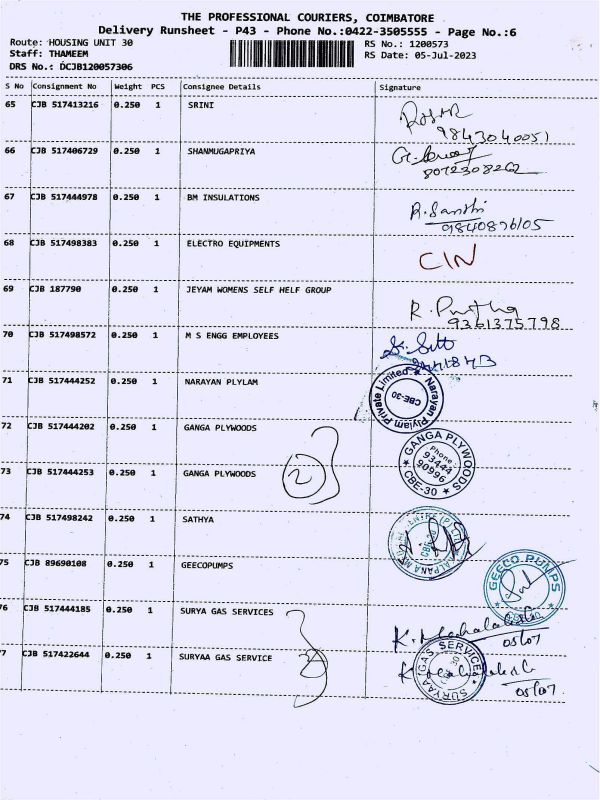 THE PROFESSIONAL COURIERS, COIMBATORE
Delivery Runsheet - P43 - Phone No.:0422-3505555 - Page No.:6
Route: HOUSING UNIT 30 RS No.: 1200573
Staff: THAMEEM RS Date: 05-Jul-2023
DRS No.: DCJB120057306
S No Consignment No Weight PCS Consignee Details Signature
65 CJB 517413216 0.250 1 SRINI
9843040051
66 CJB 517406729 0.250 1 SHANMUGAPRIYA
8072308262
67 CJB 517444978 0.250 1 BM INSULATIONS R. Santhi
9840876105
68 CJB 517498383 0.250 1 ELECTRO EQUIPMENTS CIN
69 CJB 187790 0.250 1 JEYAM WOMENS SELF HELF GROUP R.
9361375798
70 CJB 517498572 0.250 1 M S ENGG EMPLOYEES
71 CJB 517444252 0.250 1 NARAYAN PLYLAM Narayan Plylam Private Limited CBE-30
72 CJB 517444202 0.250 1 GANGA PLYWOODS GANGA PLYWOODS
Phone:
93444
90996
73 CJB 517444253 0.250 1 GANGA PLYWOODS 2 CBE-30
74 CJB 517498242 0.250 1 SATHYA
75 CJB 89690108 0.250 1 GEECOPUMPS GEECO PUMPS
76 CJB 517444185 0.250 1 SURYA GAS SERVICES K. Mahalakshmi
05/07
77 CJB 517422644 0.250 1 SURYAA GAS SERVICE 2 SURYAA GAS SERVICE
05/07.